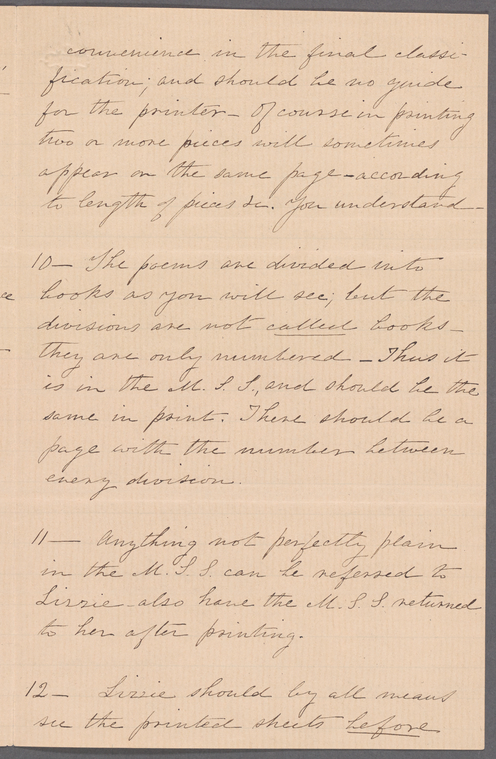 convenience in the final classi-
fication; and should be no guide
for the printer — Of course in printing
two or more pieces will sometimes
appear on the same page — according
to length of pieces &c. You understand —
10 — The poems are divided into
books as you will see; but the
divisions are not called books —
they are only numbered — Thus it
is in the M. S. S., and should be the
same in print. There should be a
page with the number between
every division.
11 — Anything not perfectly plain
in the M. S. S. can be referred to
Lizzie — also have the M. S. S. returned
to her after printing.
12 — Lizzie should by all means
see the printed sheets before